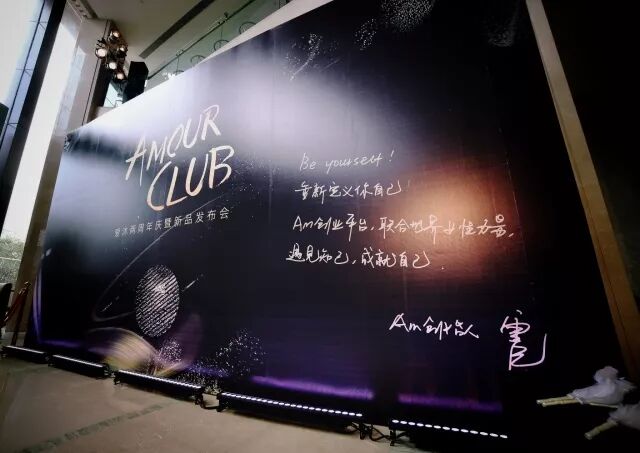 AMOUR
CLUB
爱沐两周年庆暨新品发布会
Be yourself!
重新定义你自己
Am创业平台,联合世界女性力量,
遇见知己,成就自己
Am创始人